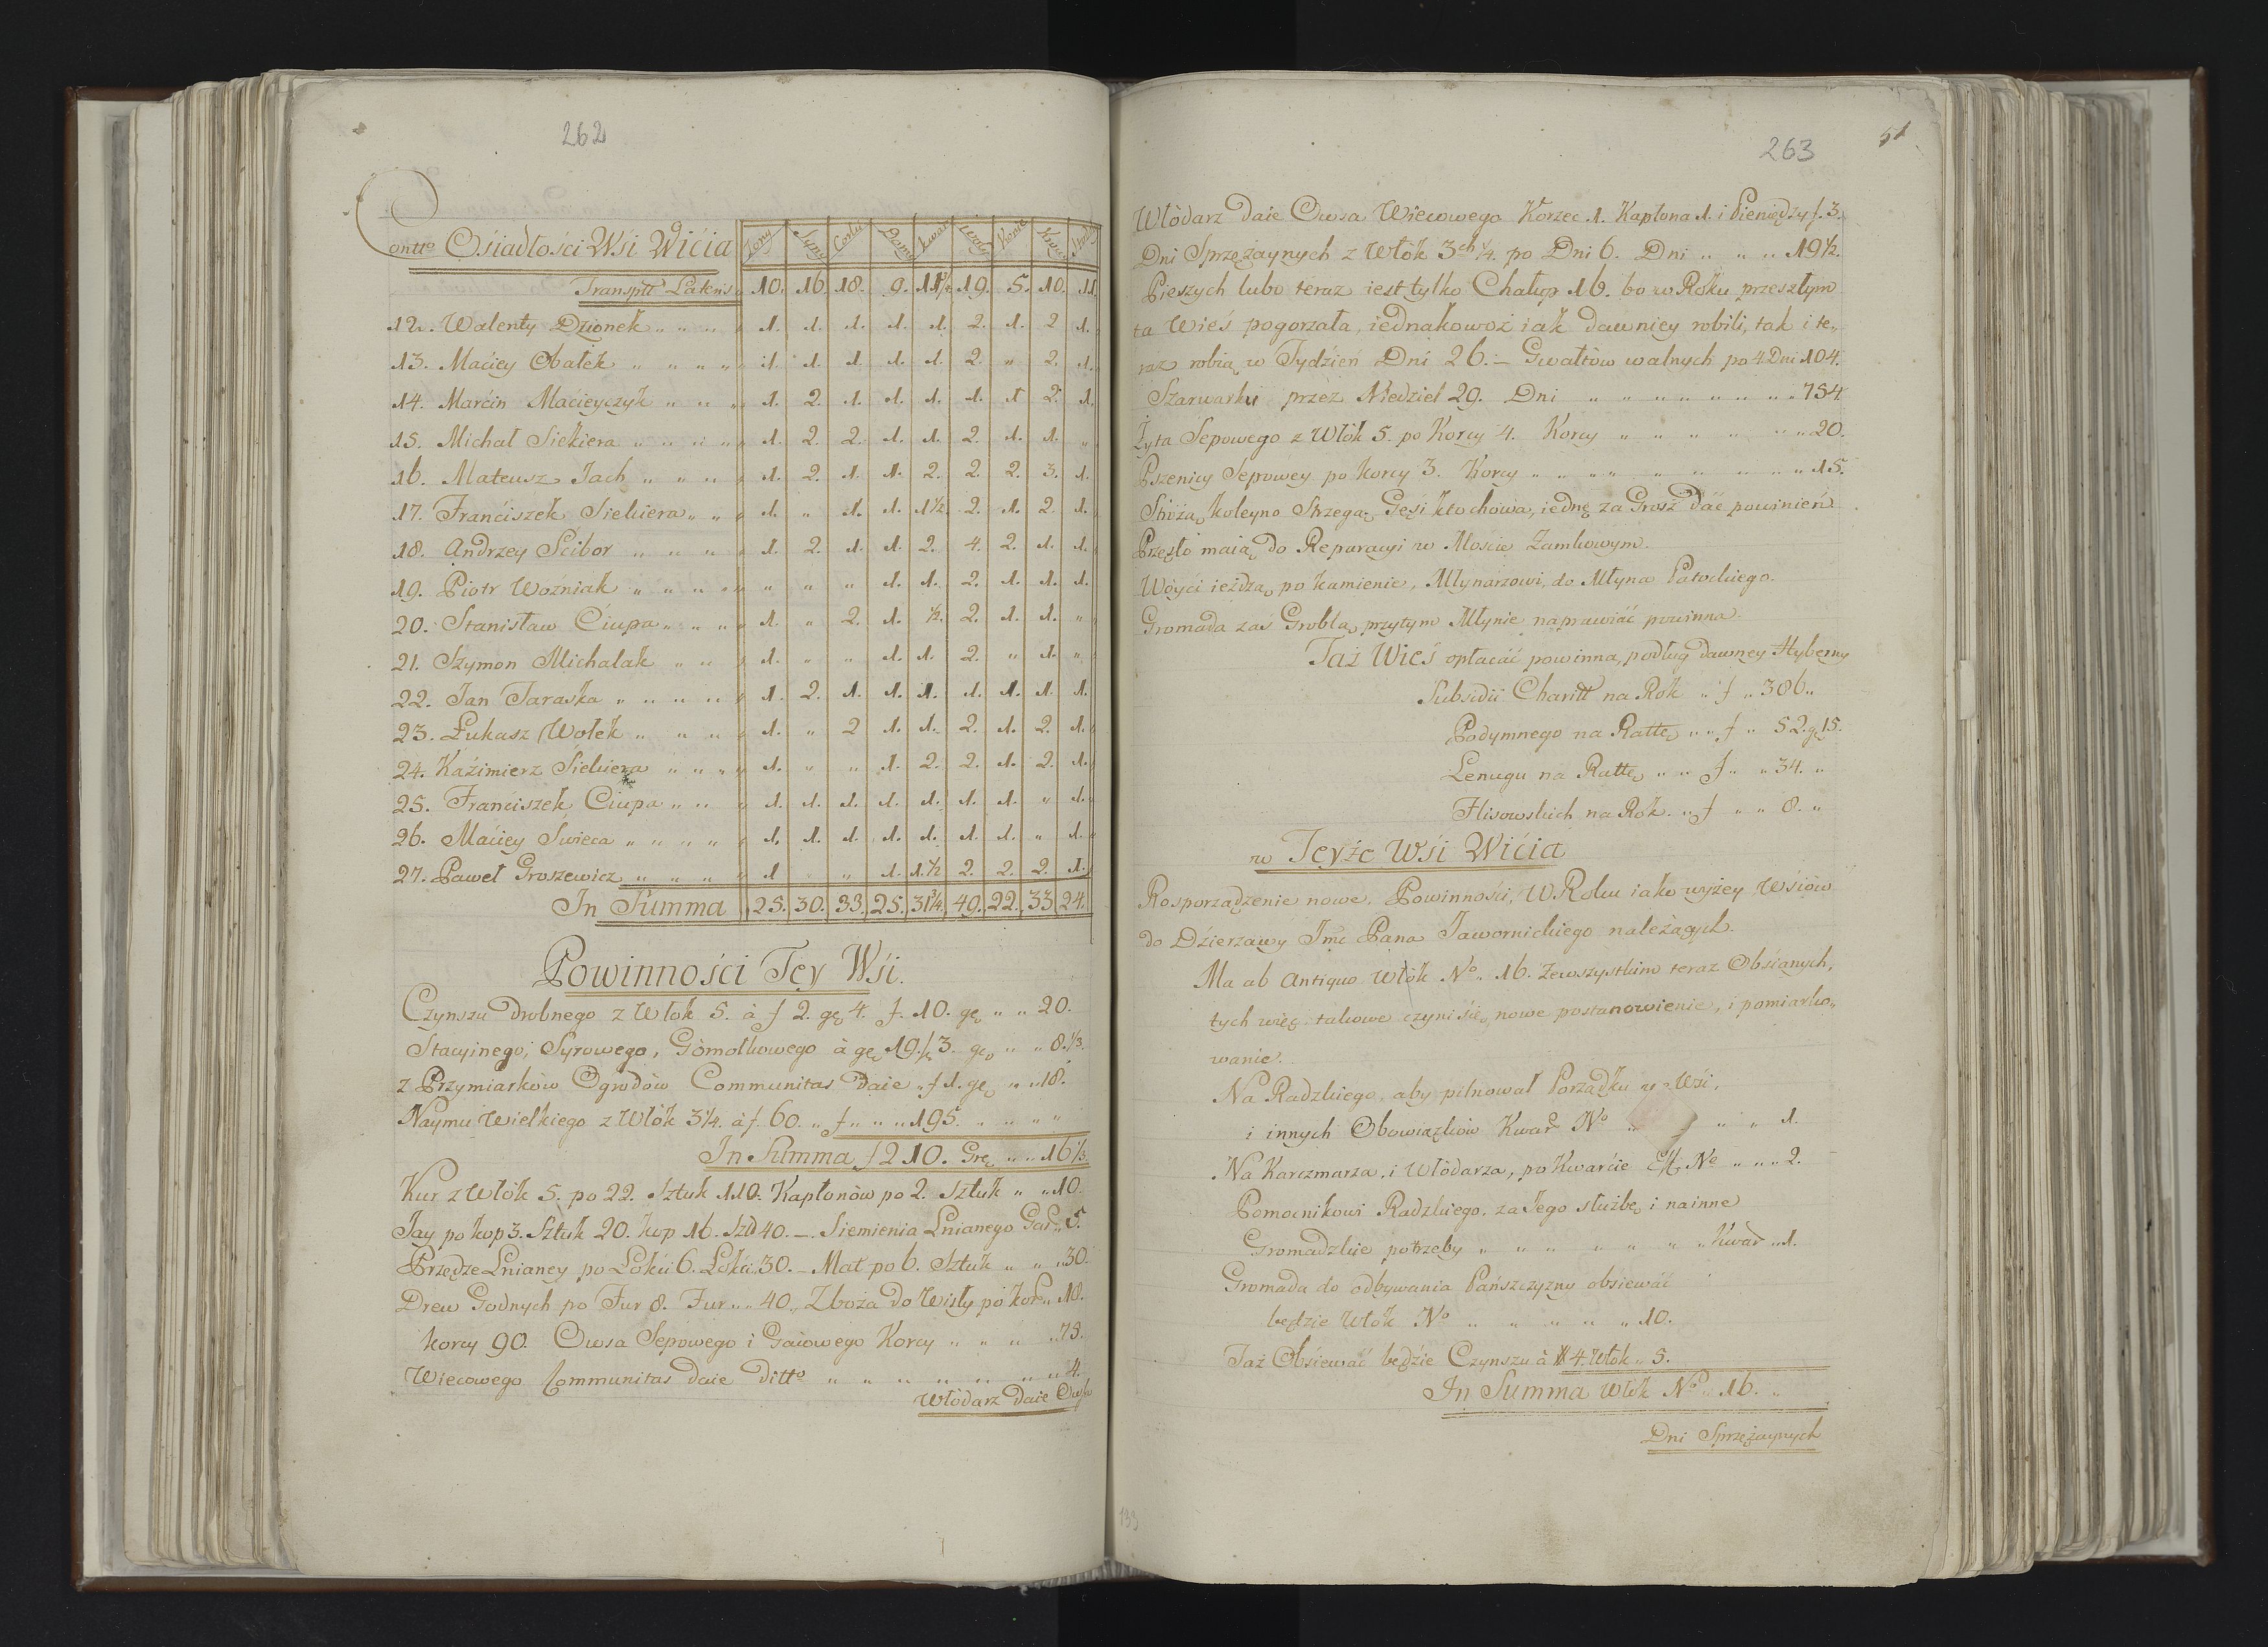 262
Contto Ośiadłości Wsi Wićia Żony Syny Córki Domy Kwar Woły Konie Krow
Transptt Lateris 10. 16. 18. 9. 19. 5. 10. 11
12. Walenty Dzionek „ „ „ 1. 1. 1. 1. 1. 2. 1. 2 1.
13. Maciey Obałek „ „ „ „ 1. 1. 1. 1. 1. 2. „ 2. 1.
14. Marćin Macieyczyk „ „ „ 1. 2. 1. 1. 1. 1. 1 2. 1.
15. Michał Siekiera „ „ „ „ 1. 2. 2. 1. 1. 2. 1. 1. „
16. Mateusz Jach „ „ „ „ 1. 2. 1. 1. 2. 2. 2. 3. 1.
17. Franćiszek Siekiera „ „ „ 1. „ 1. 1. 1½. 2. 1. 2. 1.
18. Andrzey Scibor „ „ „ „ 1. 2. 1. 1. 2. 4. 2. 1. 1.
19. Piotr Woźniak „ „ „ „ „ „ „ 1. 1. 2. 1. 1. 1.
20. Stanisław Ciupa „ „ „ „ 1. „ 2. 1. ½. 2. 1. 1. „
21. Szymon Michalak „ „ „ 1. „ „ 1. 1. 2. „ 1. „
22. Jan Taraska „ „ „ „ „ 1. 2. 1. 1. 1. 1. 1. 1. 1.
23. Łukasz Wołek „ „ „ „ 1. „ 2 1. 1. 2. 1. 2. 1.
24. Kaźimierz Siekiera „ „ „ „ 1. „ „ 1. 2. 2. 1. 2. 1.
25. Franćiszek Ciupa „ „ „ 1. 1. 1. 1. 1. 1. 1. „ 1.
26. Maćiey Swieca „ „ „ „ „ 1. 1. 1. 1. 1. 1. 1. „ 1.
27. Paweł Groszewicz „ „ „ „ 1 „ „ 1. 1.½ 2. 2. 2. 1.
In Summa 25. 30. 33. 25. 31¾. 49. 22. 33 24.
Powinności Tey Wśi.
Czynszu drobnego z Włok 5. à f 2. gę 4. f. 10. gę „ „ 20.
Stacyinego, Syrowego, Gomołkowego à gę 19. 3. gę „ „ 8.⅓.
z Przymiarków Ogrodów Communitas daie „ f 1. gę „ „ 18.
Naymu Wielkiego z Włók 3¼. à f. 60. „ f „ „ „ 195. „ „ „ „
In Summa f 210. Grę „ „ 16⅓.
Kur z Włók 5. po 22. Sztuk 110. Kapłonów po 2. Sztuk „ „ 10.
Jay po kop 3. Sztuk 20. kop 16. Szt 40. – Siemienia Lnianego Gar „ 5.
Przędze Lnianey po Łokći 6. Łokći 30. – Mat po 6. Sztuk „ „ „ 30.
Drew Godnych po Fur 8. Fur „ „ 40 „ Zboża do Wisły po kor „ 18.
korcy 90. Owsa Sepowego i Gaiowego Korcy „ „ „ „ 75.
Wiecowego Communitas daie Ditto „ „ „ „ „ „ „ 4.
Włódarz daie Owsa
263
51
Włódarz daie Owsa Wiecowego Korzec 1. Kapłona 1. i Pieniędzy f. 3.
Dni Sprzężaynych z Włók 3ch ¼. po Dni 6. Dni „ „ „ 19½.
Pieszych lubo teraz iest tylko Chałup 16. bo w Roku przeszłym
ta Wieś pogorzała, iednakowoż iak dawniey robili, tak i te„
raz robią w Tydźień Dni 26. – Gwałtów walnych po 4 Dni 104.
Szarwarku przez Niedziel 29. Dni „ „ „ „ „ „ „ „ 754
Żyta Sepowego z Włók 5. po Korcy 4. Korcy „ „ „ „ „ „ 20.
Pszenicy Sepowey po korcy 3. Korcy „ „ „ „ „ „ „ „ 15.
Stróżą koleyno Strzegą. Gęśi kto chowa, iednę za Grosz dać powinień
Przęsło maią do Reparacyi w Mościie Zamkowym.
Wóyći ieżdżą po kamienie, Młynarzowi, do Młyna Patockiego.
Gromada zaś Groblą przytym Młynie naprawiać powinna.
Taż Wieś opłacać powinna, podług dawney Hyberny
Subsidii Charitt na Rok „ f „ 306 „
Podymnego na Rattę „ „ f „ 52. g. 15.
Lenugu na Rattę „ „ f „ „ 34. „
Flisowskich na Rok. „ f „ „ 8. „
w Teyże Wśi Wićia
Rosporządzenie nowe, Powinności, W Roku iako wyżey Wśiów
do Dźierzawy Jmć Pana Jawornickiego należących.
Ma ab Antiquo Włók No. 16. Zewszystkim teraz Obśianych,
tych więc takowe czyni się, nowe postanowienie, i pomiarko„
wanie.
Na Radzkiego, aby pilnował Porządku w Wśi,
i innych Obowiązków Kwar No „ „ „ 1.
Na Karczmarza, i Włódarza, po Kwarcie No „ „ „ 2.
Pomocnikowi Radzkiego, za Jego służbę, i na inne
Gromadzkie potrzeby „ „ „ „ „ „ „ Kwar „ 1.
Gromada do odbywania Pańszczyzny obsiewać
będzie Włók No „ „ „ „ „ 10.
Taż Obsiewać będźie Czynszu à 4. Włok „ 5.
In Summa Włók No „ 16. „
Dni Sprzężaynych
133